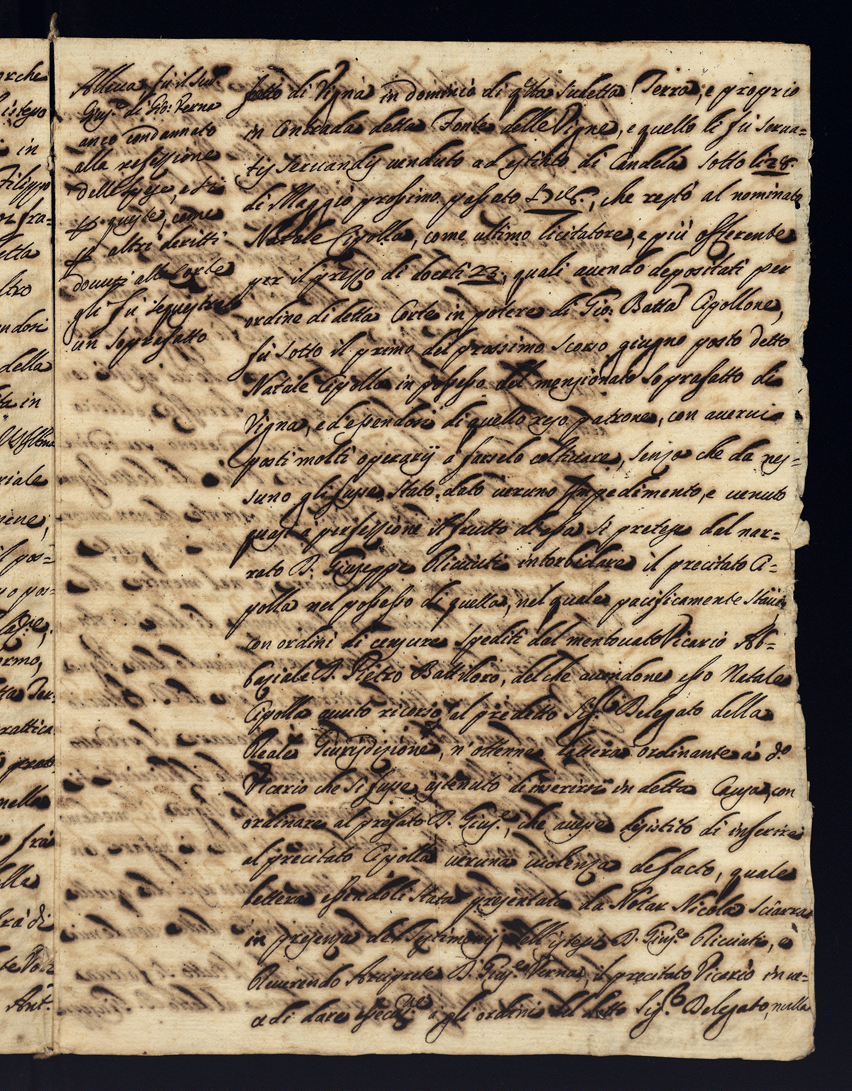 Alliva fù il sud.
Gius.e di Gio: Verna
anco condannato
alla refessione
delle spese, e si
p. queste, come
p. altri deritti
douuti alla Corte
gli fù sequestrato
un soprafatto
fatto di Vigna in dominio di q.sta sudetta Terra, e proprio
in Contrada detta Fonte delle Vigne, e quello li fù serua=
tis seruandis venduto ad estinto di Candela sotto li 28.
di Maggio prossimo passato, che restò al nominato
Natale Cipolla, come ultimo licitatore, e più offerente
per il prezzo di docati 23, quali auendo depositati per
ordine di detta Corte in potere di Gio: Batta Cipollone,
fù sotto il primo del prossimo scorso giugno posto detto
Natale Cipolla in possesso del menzionato soprafatto di
Vigna, ed essendosi di quello reso patrone, con auerui
posti molti operarij a farselo coltivare, senza che da nes=
suno gli fusse stato dato veruno impedimento, e venuto
quasi a perfessione il frutto d'essa si pretese dal nar=
rato D. Giuseppe Oliciuti intorbidare il precitato Ci=
polla nel possesso di quella, nel quale pacificamente staua,
con ordini di censure spediti dal mentouato Vicario Ab=
beziale D. Pietro Battiloro, del che auendone esso Natale
Cipolla auuto ricorso al predetto Sig.r Delegato della
Reale Giurisdizione, n'ottenne lettera ordinante à d.o
Vicario che si fusse astenuto d'inserirsi in detta Causa, con
ordinare al prefato D. Gius.e, che auesse desistito di inferire
al precitato Cipolla veruna violenza de facto, quale
lettera essendoli stata presentata da Notar Nicola Sciarra
in presenza de testimonij, dell'istesso D. Gius.e Oliciuti, e
Reuerendo Arciprete D. Gius.e Verna, il precitato Vicario in ve=
ce di dare esecut.ne a gli ordini del detto Sig.r Delegato, nulla